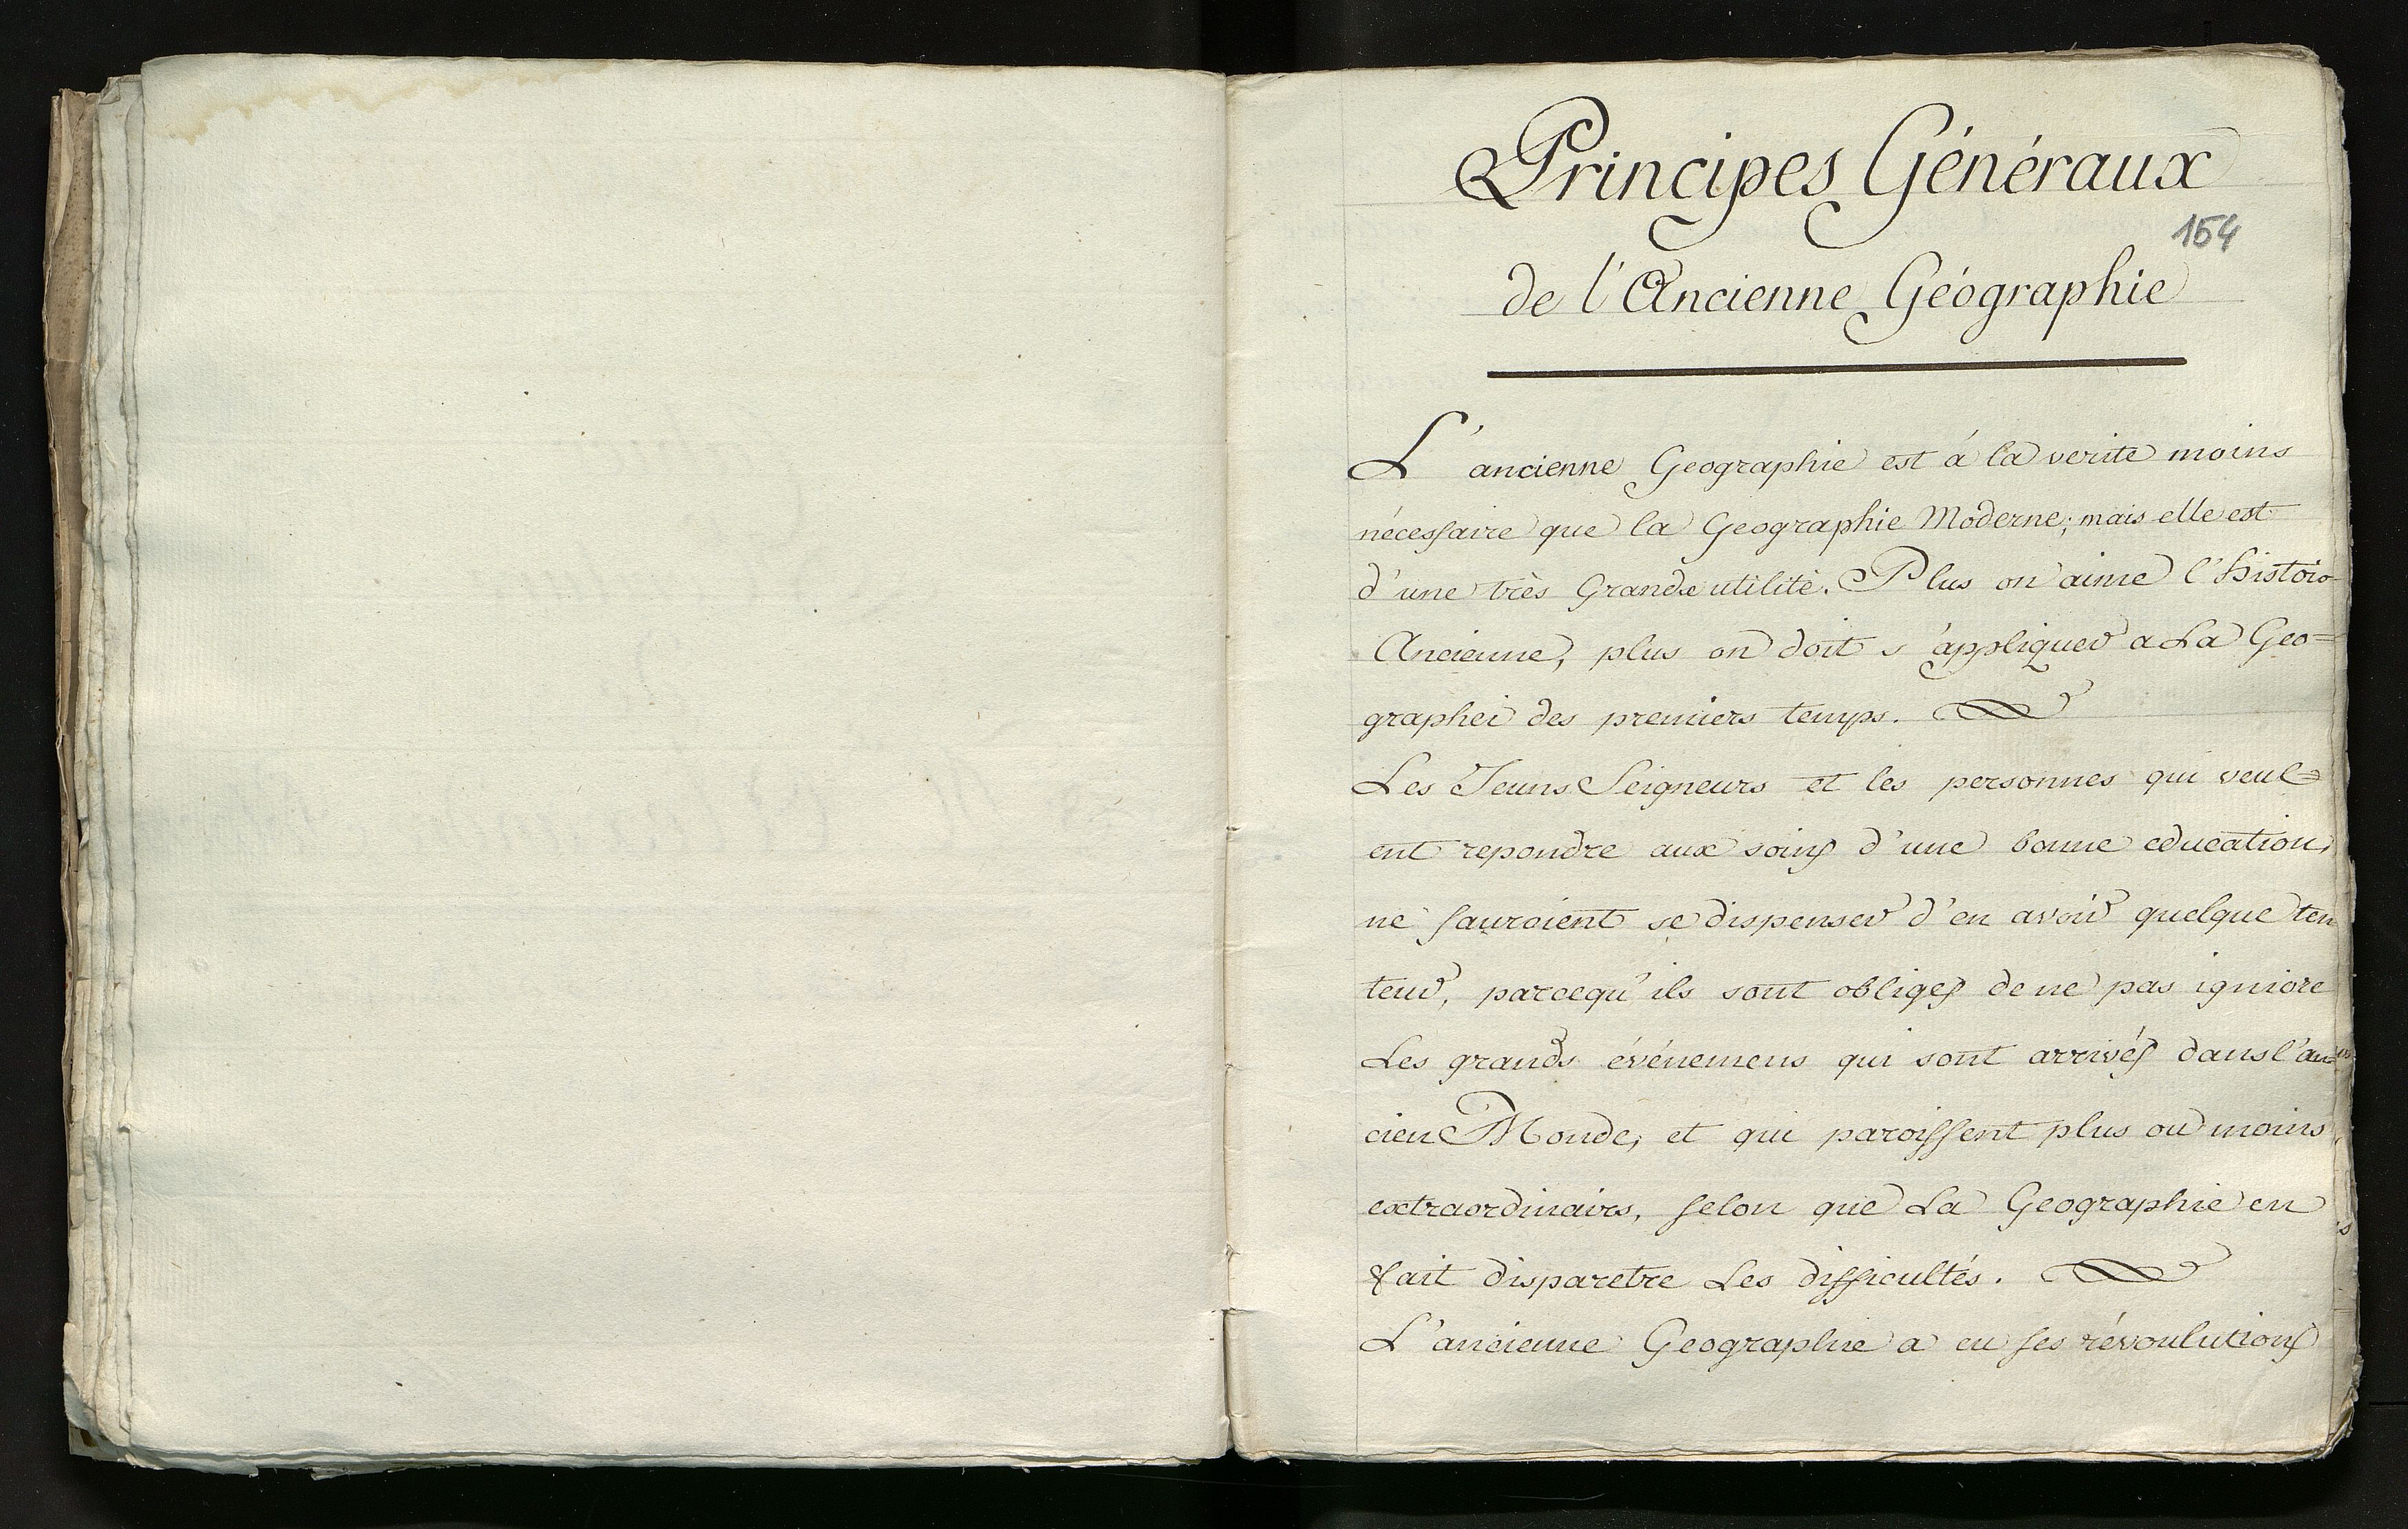 Principes Généraux
154
de l'Ancienne Géographie
L'ancienne Geographie est á la verite moins
nécessaire que la Geographie Moderne; mais elle est
d'une très Grande utilité. Plus on aime l'Histoir
Ancienne, plus on doit s'appliquer a La Geo=
graphei des premiers temps.
Les Jeuns Seigneurs et les personnes qui veul=
ent repondre aux soins d'une bonne education,
ne sauroient se dispenser d'en avoir quelque ten
teur, parcequ'ils sont obliges de ne pas igniore
Les grands événemens qui sont arrivés dans l'an=
cien Monde, et qui paroissent plus ou moins
extraordinairs, selon que La Geographie en
fait disparetre Les difficultés.
L'ancienne Geographie a eu ses révoulutions